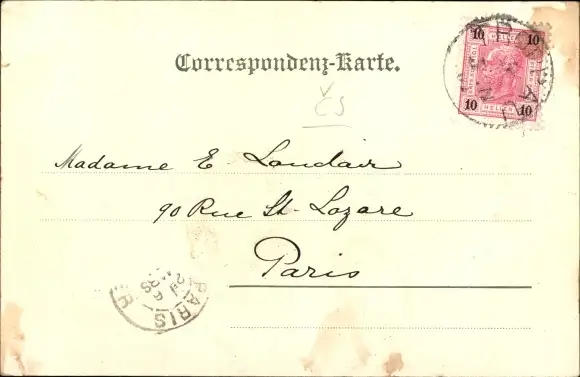 Correspondenz-Karte.
10 10
10 10
HELLER
ČS
Madame E. Landair
90 Rue St. Lazare
Paris
PARIS